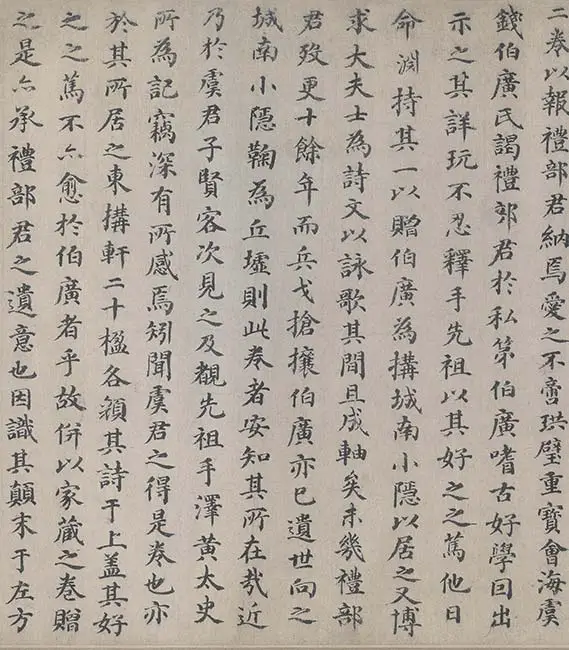 二卷以報禮部君納焉愛之不啻珙璧重寶會海虞
錢伯廣氏謁禮部君於私第伯廣嗜古好學回出
示之其詳玩不忍釋手先祖以其好之之篤他日
命淵持其一以贈伯廣為搆城南小隱以居之又博
求大夫士為詩文以詠歌其間且成軸矣未幾禮部
君歿更十餘年而兵戈搶攘伯廣亦已遺世向之
城南小隱鞠為丘墟則此卷者安知其所在哉近
乃於虞君子賢客次見之及覩先祖手澤黃太史
所為記竊深有所感焉矧聞虞君之得是卷也亦
於其所居之東搆軒二十楹各額其詩于上盖其好
之之篤不亦愈於伯廣者乎故併以家藏之卷贈
之是亦承禮部君之遺意也因識其顛末于左方